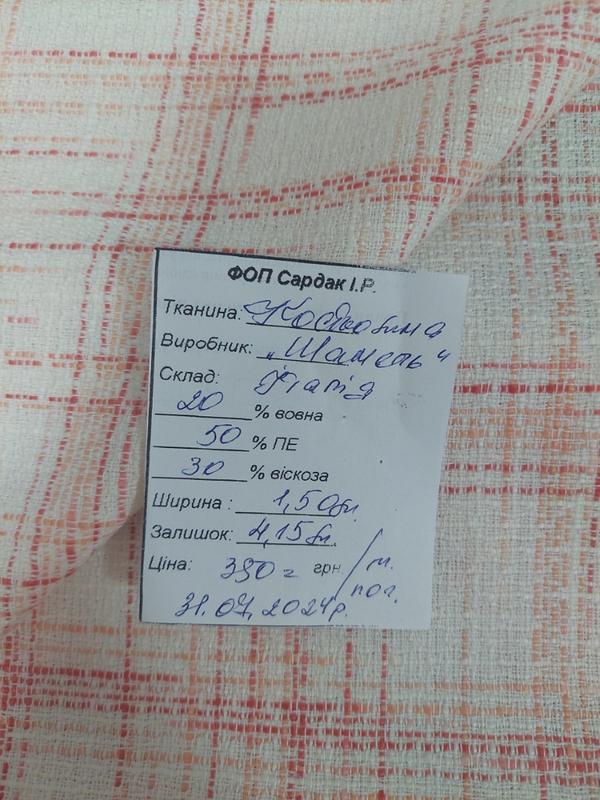 ФОП Сардак І.Р.
Тканина: Костюмна
Виробник: „Шанель"
Склад: Італія
20 % вовна
50 % ПЕ
30 % віскоза
Ширина : 1,50 м.
Залишок: 4,15 м.
Ціна: 390 = грн / м. пог.
31.07.2024р.